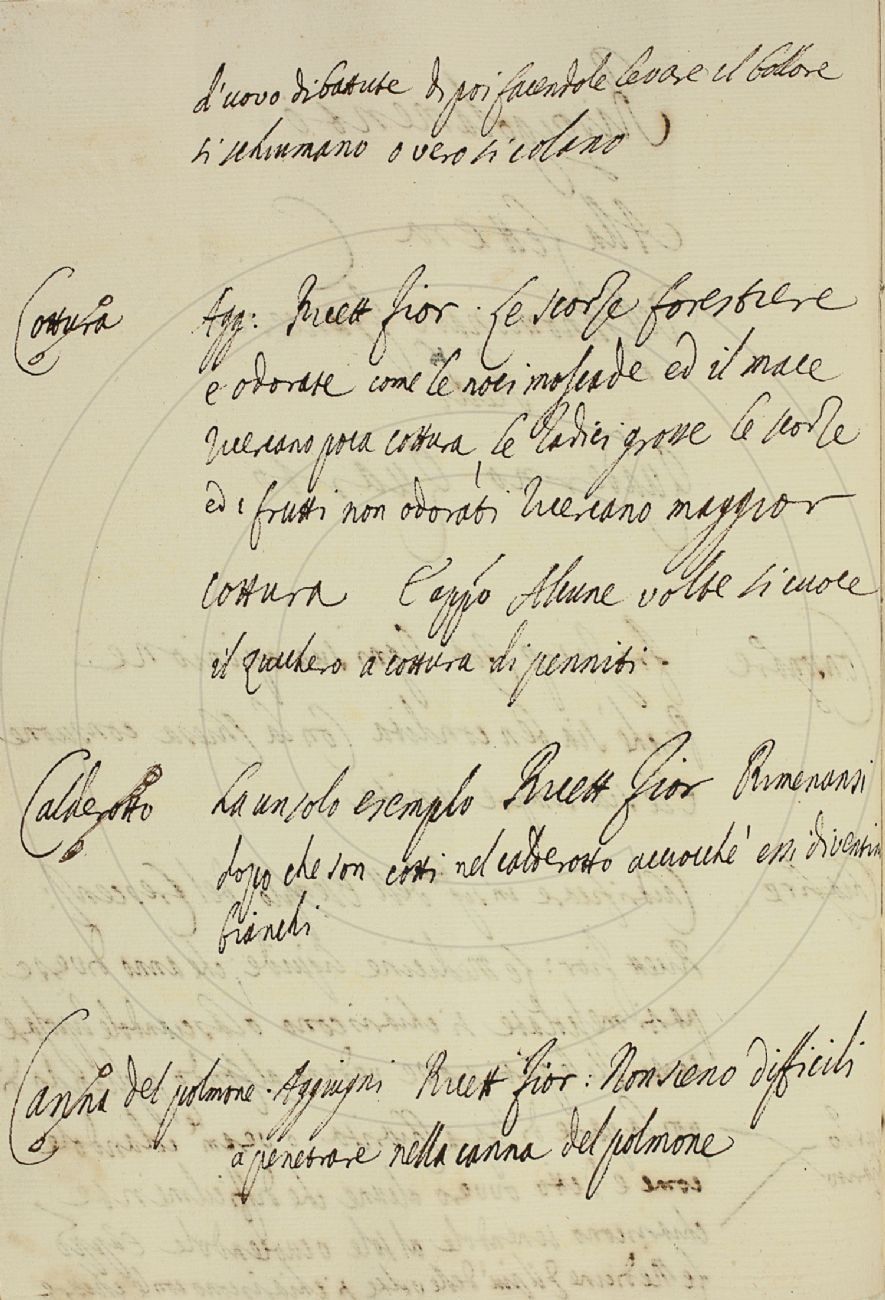 d'uovo dibattute di poi facendole levare il bollore
si schiumano o vero si colano
Cottura Agg: Ricett Fior. Le scorze forestiere
e odorate come le noci moscade ed il mace
ricercano poca cottura, le radici grosse le scorze
ed i frutti non odorati ricercano maggior
cottura E appo Alcune volte si cuoce
il zucchero a cottura di penniti
Calderotto Ha un solo esempio Ricett Fior Rimenansi
dopo che son cotti nel calderotto acciocchè essi diventin
bianchi
Canna del polmone. Aggiugni Ricett Fior: Non sieno difficili
a penetrare nella canna del polmone